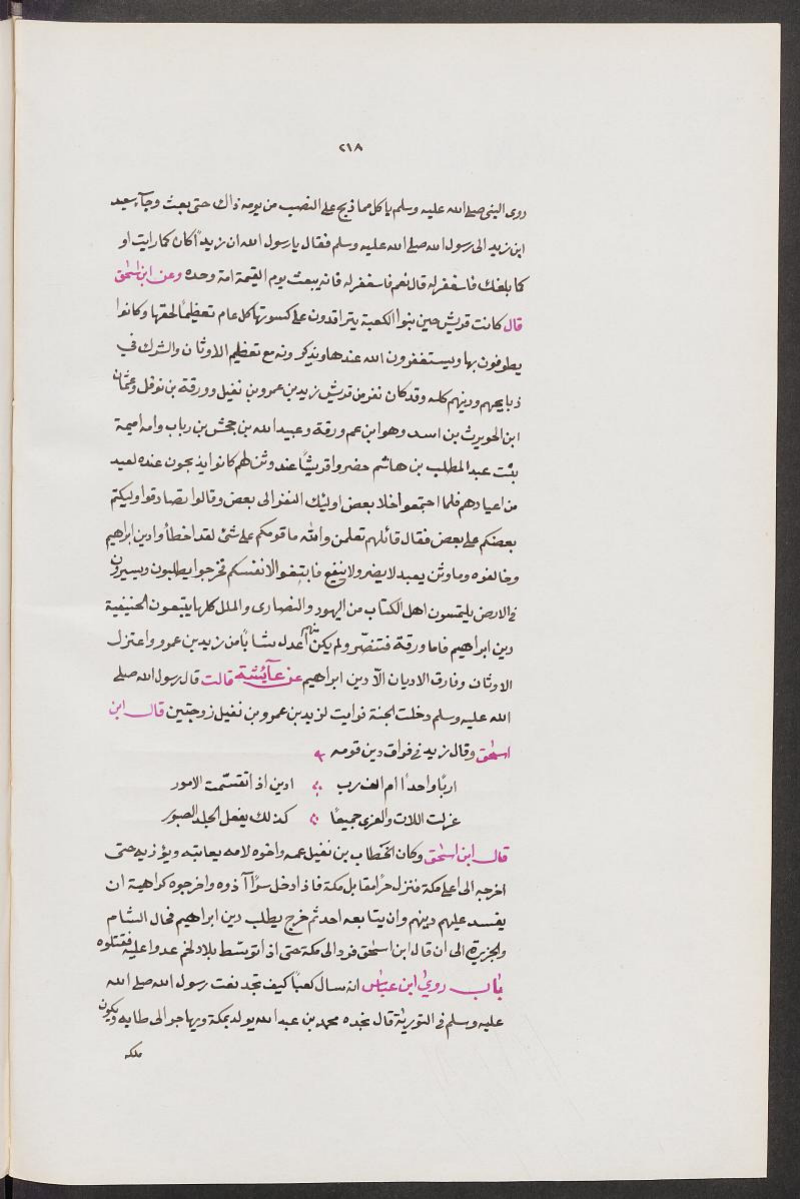 ٢١٨
روى النبي صلى الله عليه وسلم ياكل مما ذبح على النصب من يومه ذاك حتى بعث وجآء سعيد
ابن زيد الى رسول الله صلى الله عليه وسلم فقال يا رسول الله ان زيداً كان كما رايت او
كما بلغك فاستغفر له قال نعم فاستغفر له فانه يبعث يوم القيمة امة وحده وعن ابن اسحق
قال كانت قريش حين بنوا الكعبة يترافدون على كسوتها كل عام تعظيمًا لحقها وكانوا
يطوفون بها ويستغفرون الله عندها ويذكرونه مع تعظيم الاوثان والشرك في
ذبايحهم ودينهم كله وقد كان نفر من قريش زيد بن عمرو بن نفيل وورقة بن نوفل وعثمان
ابن الحويرث بن اسد وهو ابن عم ورقة وعبيد الله بن جحش بن رباب وامه اميمة
بنت عبد المطلب بن هاشم حضروا قريشًا عند وثن لهم كانوا يذبحون عنده لعيد
من اعيادهم فلما اجتمعوا خلا بعض اوليك النفر الى بعض وقالوا تصادقوا وليكتم
بعضكم على بعض فقال قائلهم تعلمن والله ما قومكم على شئ لقد اخطأوا دين ابراهيم
وخالفوه وما وثن يعبد لا يضر ولا ينفع فابتغوا لانفسكم فخرجوا يطلبون ويسيرون
في الارض يلتمسون اهل الكتاب من اليهود والنصارى والملل كلها يتبعون الحنيفية
دين ابراهيم فاما ورقة فتنصّر ولم يكن فيهم أعدل شابًا من زيد بن عمرو واعتزل
الاوثان وفارق الاديان الآ دين ابراهيم عن عآئشة قالت قال رسول الله صلى
الله عليه وسلم دخلت الجنة فرايت لزيد بن عمرو بن نفيل زوجتين قال ابن
اسحق وقال زيد في فراق دين قومه
اربًا واحدًا ام الف رب ادين اذا تقسّمت الامور
عزلت اللات والعزى جميعًا كذلك يفعل الجلد الصبور
قال ابن اسحق وكان الخطاب بن نفيل عمه واخوه لامه يعاتبه ويؤذيه حتى
اخرجه الى اعلى مكة فنزل حرا مقابل مكة فاذا دخل سرًا آذوه واخرجوه كراهية ان
يفسد عليهم دينهم وان يتابعه احد ثم خرج يطلب دين ابراهيم فجال الشام
والجزيرة الى ان قال ابن اسحق فرد الى مكة حتى اذا توسّط بلاد لخم عدوا عليه فقتلوه
باب روي ابن عباس انه سال كعبًا كيف تجد نعت رسول الله صلى الله
عليه وسلم في التورية قال نجده محمد بن عبد الله يولد بمكة ويهاجر الى طابه ويكون
ملكه